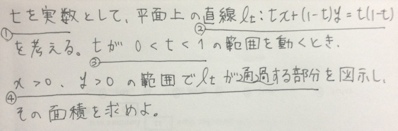 tを実数として、平面上の直線lt: tx+(1-t)y=t(1-t)
① ②
を考える。tが 0<t<1の範囲を動くとき、
③
x>0、y>0 の範囲でltが通過する部分を図示し、
④
その面積を求めよ。